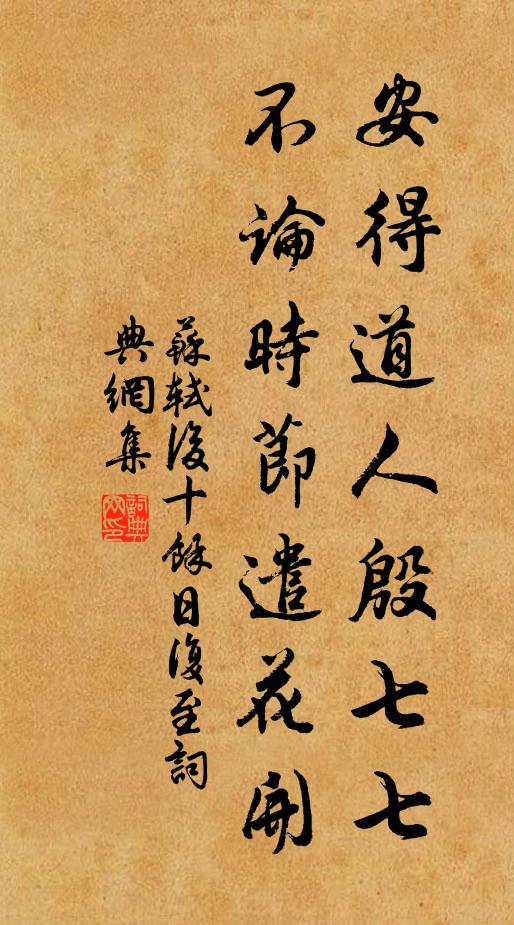 安得道人殷七七
不論時節遣花開
蘇軾後十餘日復至詞
典網集
詞典
网印